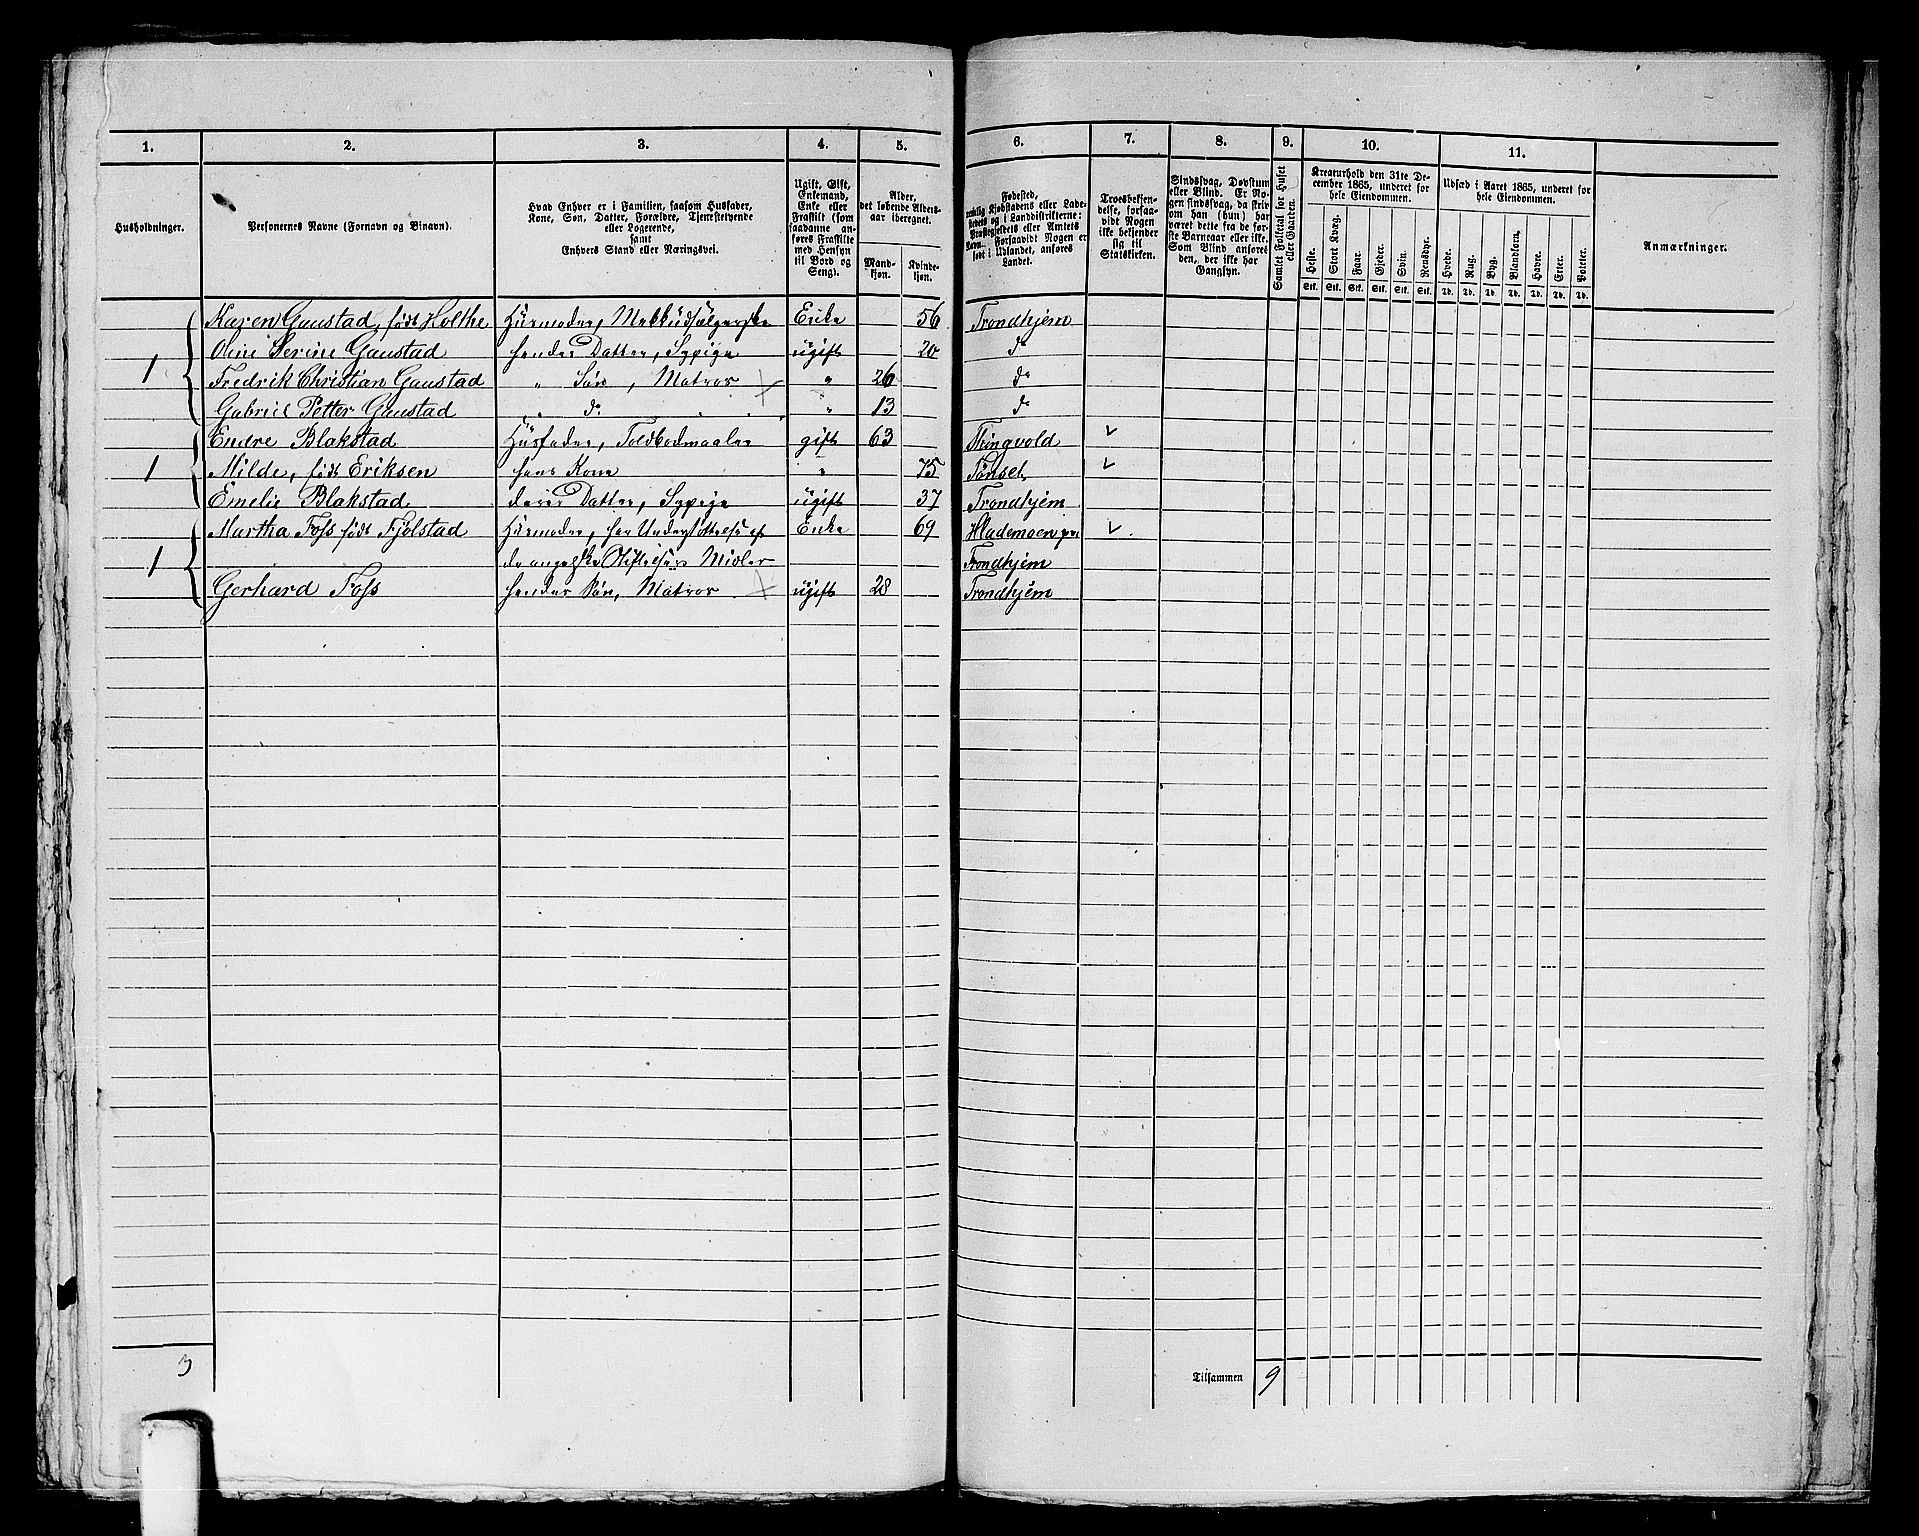 1. 2. 3. 4. 5. 6. 7. 8. 9. 10. 11.
Husholdninger.
Personernes Navne (Fornavn og Binavn).
Hvad Enhver er i Familien, saasom Husfader,
Kone, Søn, Datter, Forældre, Tjenestetyende
eller Logerende,
samt
Enhvers Stand eller Næringsvei.
Ugift, Gift,
Enkemand,
Enke eller
Fraskilt (som
saadanne an-
føres Fraskilte
med Hensyn
til Bord og
Seng).
Alder,
det løbende Alders-
aar iberegnet.
Mand-
kjøn.
Kvinde-
kjøn.
Fødested,
nemlig Kjøbstadens eller Lade-
stedets og i Landdistrikterne:
Præstegjeldets eller Amtets
Navn. Forsaavidt Nogen er
født i Udlandet, anføres
Landet.
Troesbekjen-
delse, forsaa-
vidt Nogen
ikke bekjender
sig til
Statskirken.
Sindssvag, Døvstum
eller Blind. Er No-
gen sindssvag, da skriv
om han (hun) har
været dette fra de før-
ste Barneaar eller ikke.
Som Blind anføres
den, der ikke har
Gangsyn.
Samlet Folketal for Huset
eller Gaarden.
Kreaturhold den 31te De-
cember 1865, underet for
hele Eiendommen.
Heste. Stort Kvæg. Faar. Gjeder. Svin. Rensdyr.
Stk. Stk. Stk. Stk. Stk. Stk.
Udsæd i Aaret 1865, underet for
hele Eiendommen.
Hvede. Rug. Byg. Blandkorn. Havre. Erter. Poteter.
Td. Td. Td. Td. Td. Td. Td.
Anmærkninger.
Karen Gaustad, født Holthe Husmoder, Enke 56 Trondhjem
1 Oline Serine Gaustad hendes Datter, Sypige ugift 20 do
Fredrik Christian Gaustad " Søn, Matros " 26 do
Gabriel Petter Gaustad " do " 13 do
Endre Blakstad Husfader, Toldbodmaaler gift 63 Thingvold
1 Milde, født Eriksen hans Kone " 75 Tønset
Emelie Blakstad deres Datter, Sypige ugift 37 Trondhjem
Martha Foss født Fjølstad Husmoder, har Understøttelse af Enke 69
1 Midler Trondhjem
Gerhard Foss hendes Søn, Matros ugift 28 Trondhjem
3 Tilsammen 9